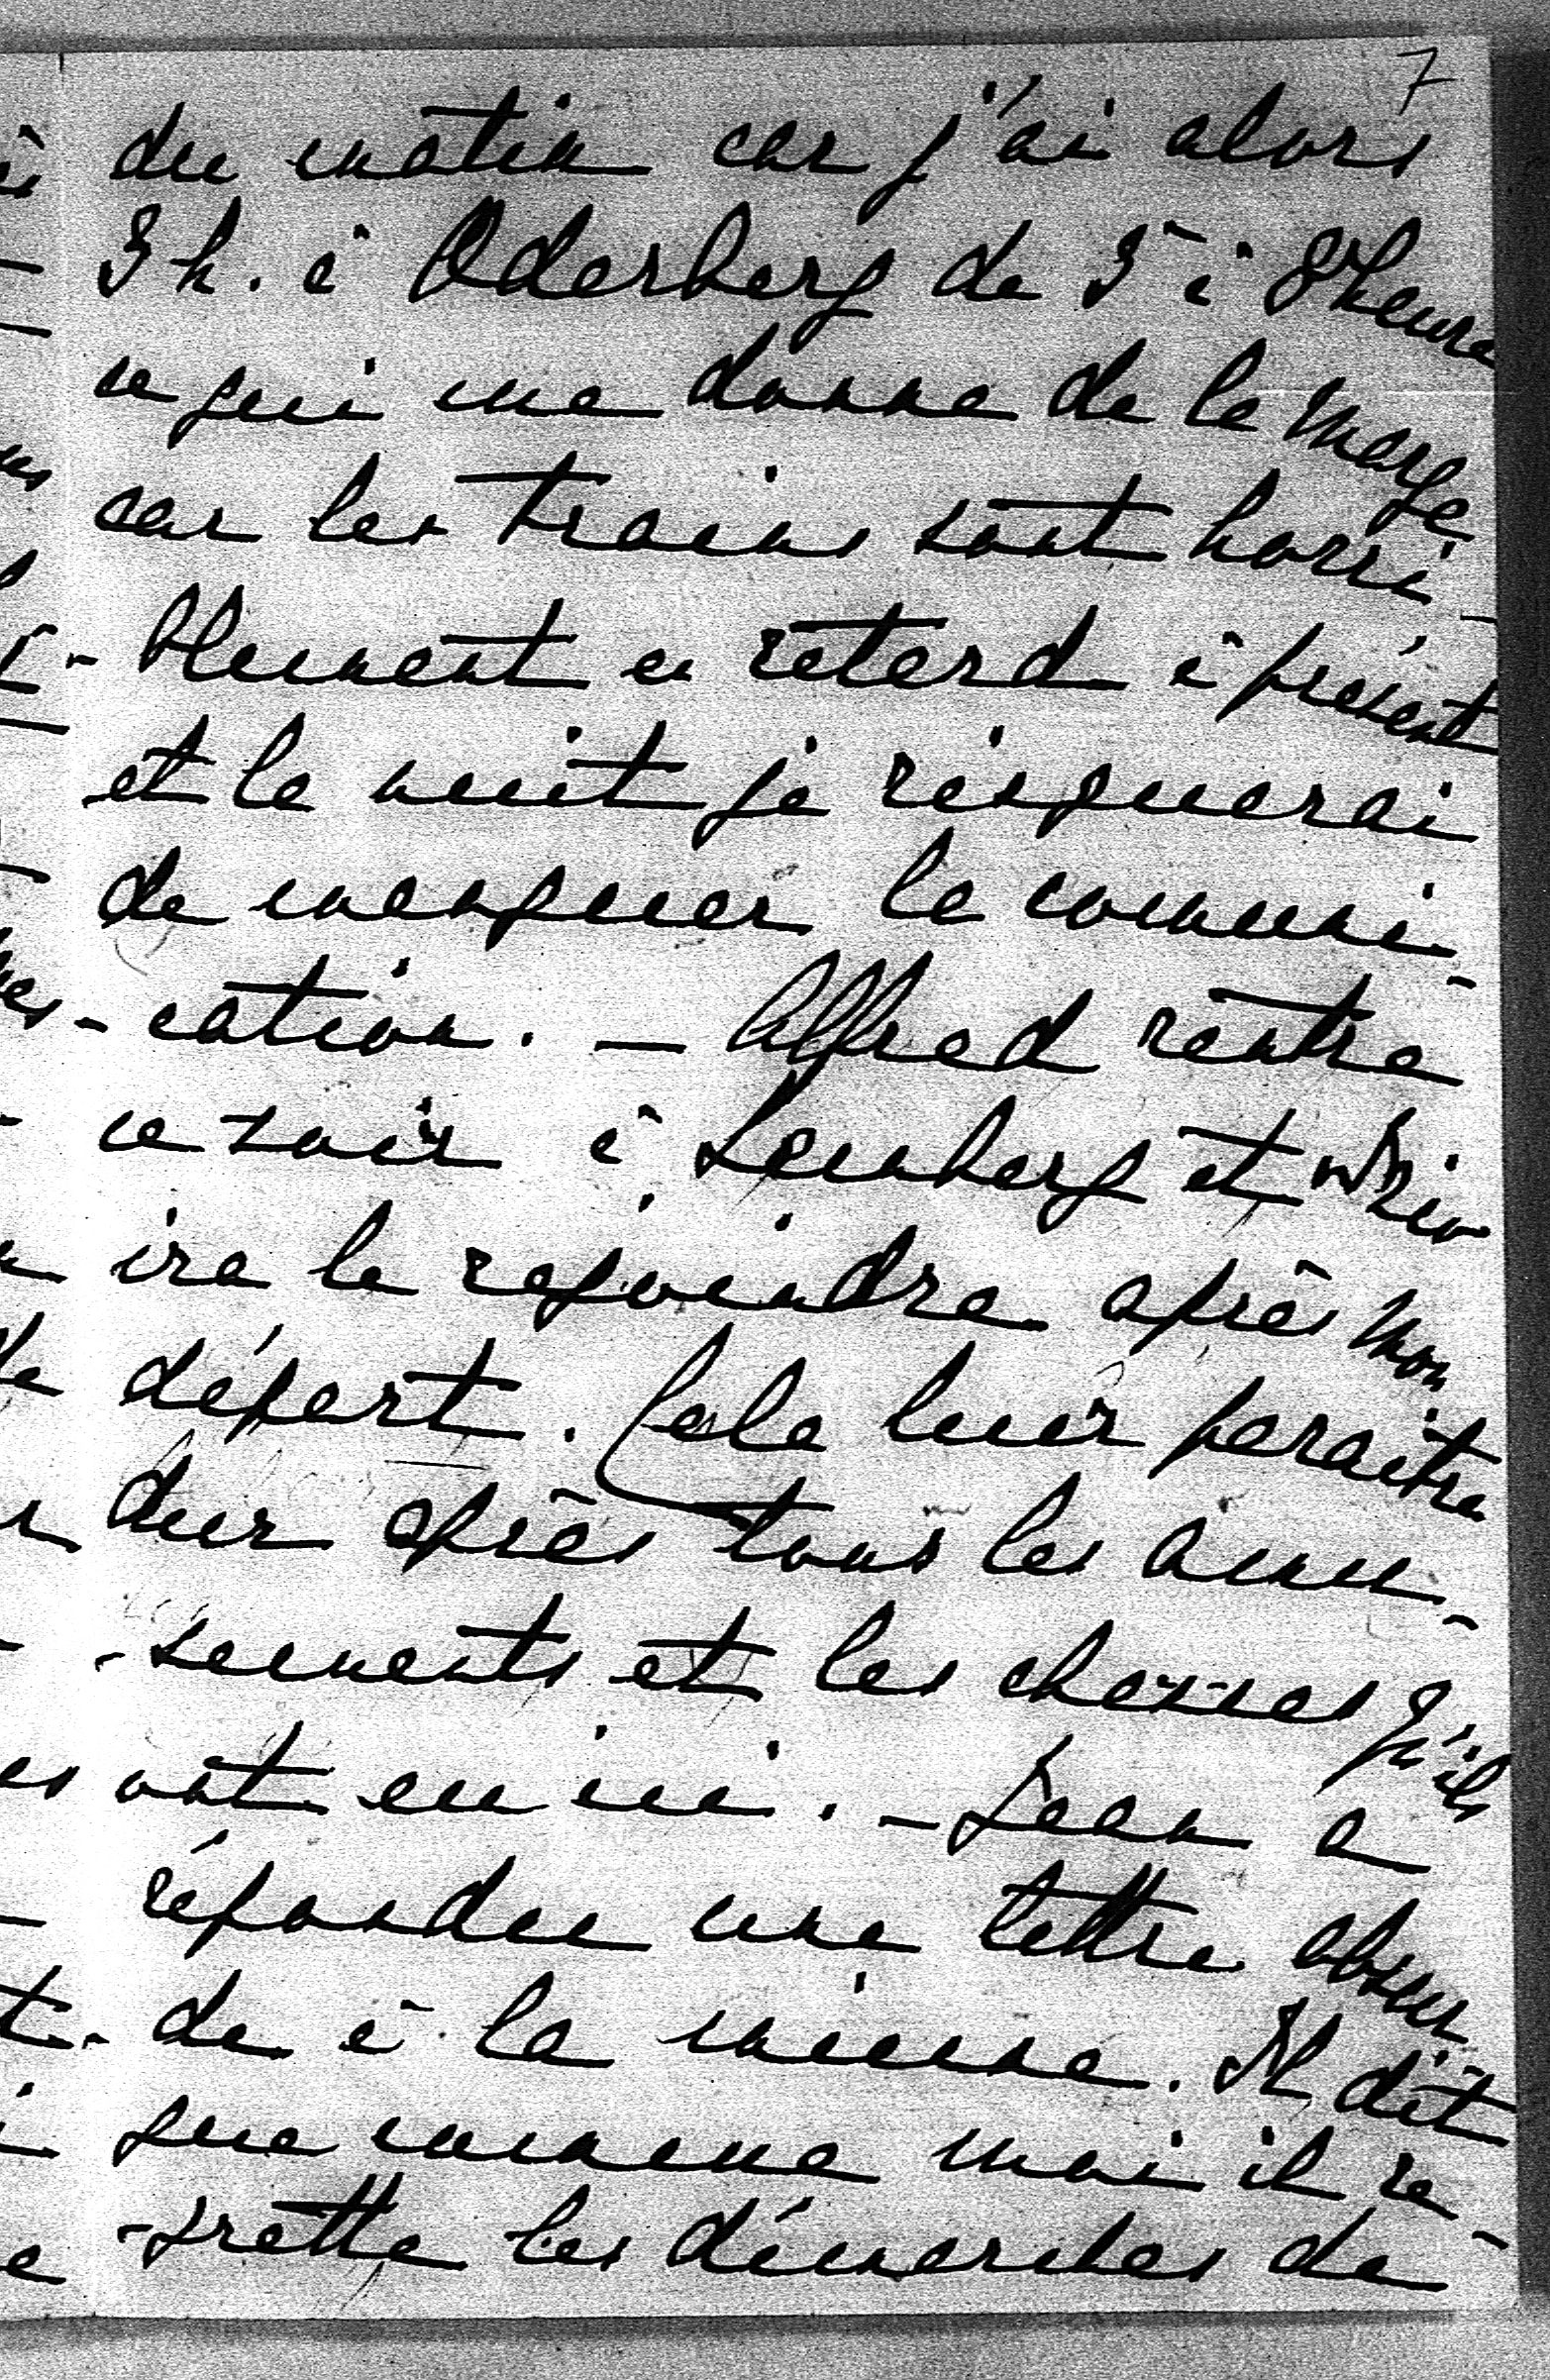 7
du matin car j'ai alors
3 h. à Oderberg de 5 à 8 heures
ce qui me donne de la marge
car les trains sont horri-
-blement en retard à présent
et la nuit je risquerai
de manquer la communi-
-cation. — Alfred rentre
ce soir à Lemberg et
ira le rejoindre après mon
départ. Cela leur paraîtra
dur après tous les amu-
-sements et les chasses qu'ils
ont eu ici. — Jean a
répondu une lettre absur-
-de à la mienne. Il dit
que comme moi il re-
-grette les démarches de